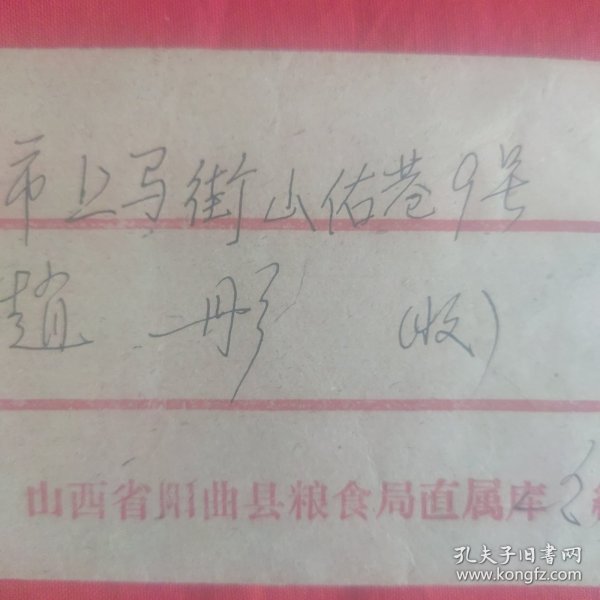 市上马街山佑巷9号
趙 彤 (收)
山西省阳曲县粮食局直属库
孔夫子旧书网
www.kongfz.com